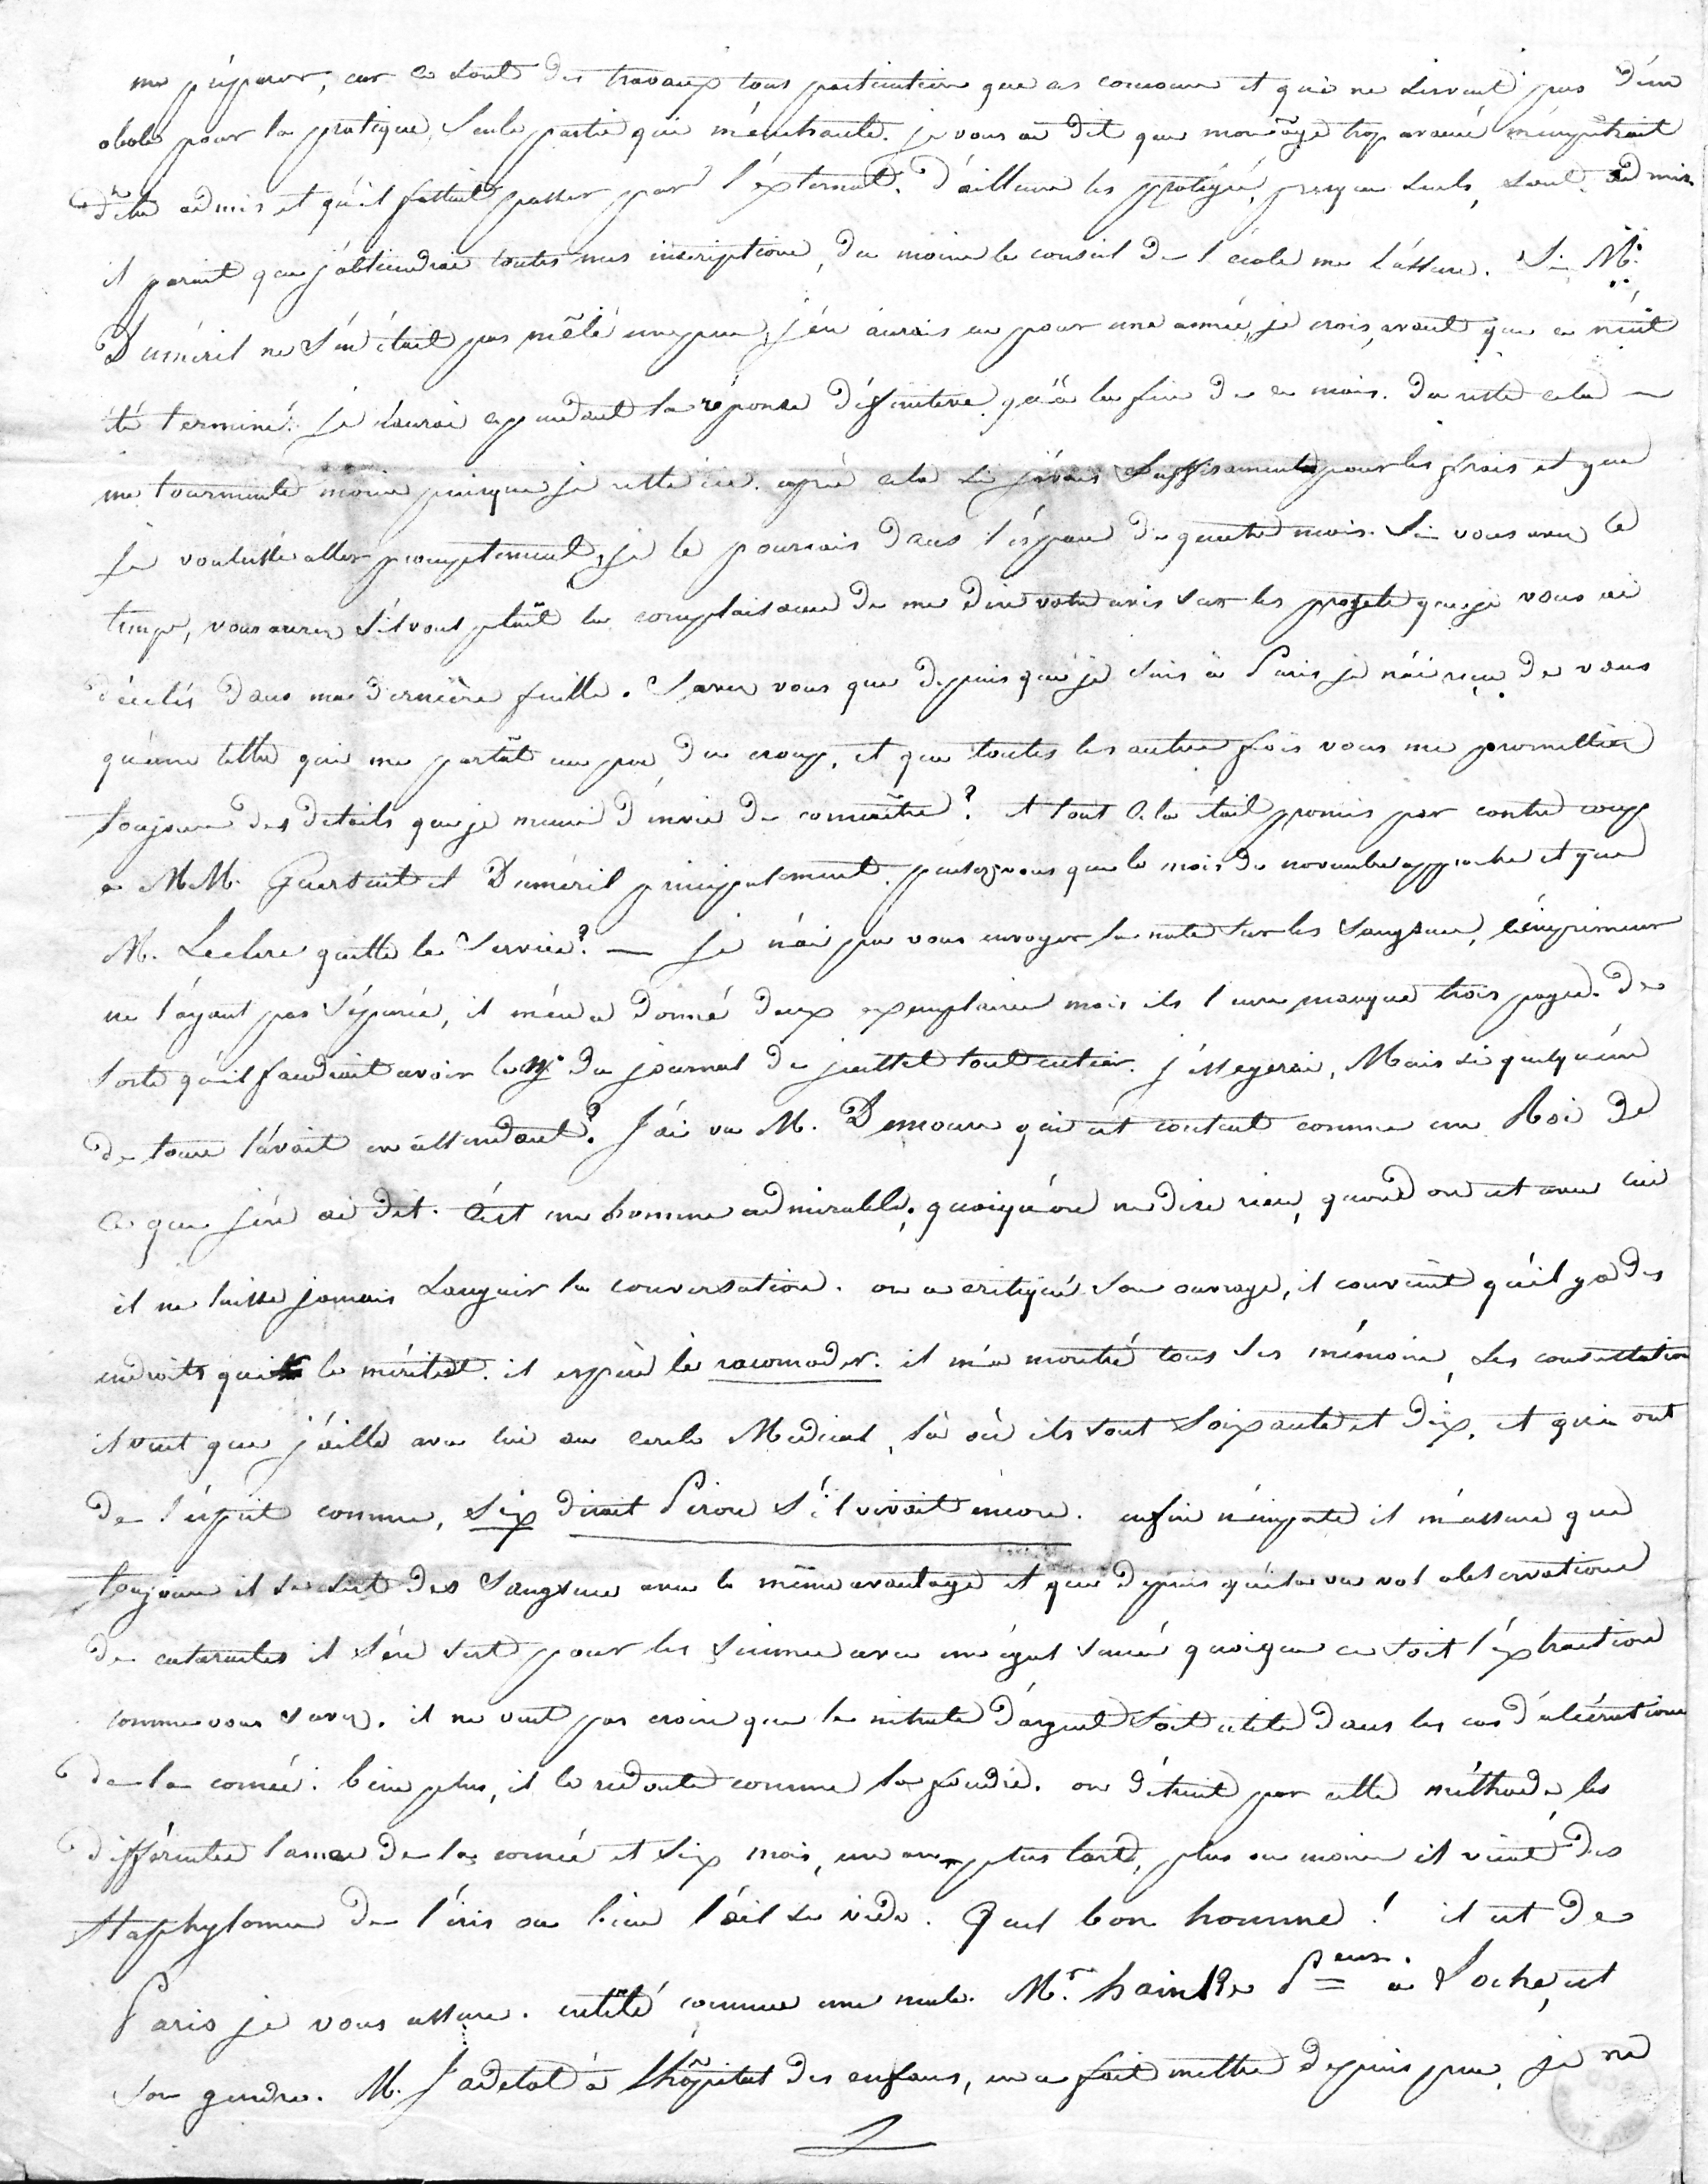 me préparer, car ce sont des travaux tous particuliers que ces concours et qui ne servent pas d'un
obole pour la pratique, seule partie qui m'enchante. je vous ai dit que mon âge trop avancé m'empêchait
d'être admis et qu'il fallait passer par l'externat. D'ailleurs les protégés, presque seuls, sont admis
il parait que j'obtiendrai toutes mes inscriptions, du moins le conseil de l'école me l'assure. Si M.
Duméril ne s'en était pas mêlé un peu, j'en aurais eu pour une année, je crois, avant que ce n'eut
été terminé. je n'aurai cependant la réponse définitive qu'à la fin de ce mois. du reste cela
me tourmente moins puisque je reste ici. après cela si j'avais suffisamment pour les frais et que
je voulusse aller promptement, je le pourrais dans l'espace de quatre mois. Si vous avez le
temps, vous aurez s'il vous plait la complaisance de me dire votre avis sur les projets que je vous ai
décelés dans ma dernière feuille. Savez vous que depuis que je suis à Paris je n'ai reçu de vous
qu'une lettre qui me parlât un peu du croup, et que toutes les autres fois vous me promettiez
toujours des détails que je meurs d'envie de connaître? et tout cela était promis par contre coup
à MM. Guersent et Duméril principalement. pensez vous que le mois de novembre approche et que
M. Leclerc quitte le service? — je n'ai pu vous envoyer la note sur les sangsues, l'imprimeur
ne l'ayant pas séparée, il m'en a donné deux exemplaires mais il leur manque trois pages. De
sorte qu'il faudrait avoir le n° du journal de juillet tout entier. j'essayerai, Mais si quelqu'un
de tours l'avait en attendant? J'ai vu M. Demours qui est content comme un Roi de
ce que j'en ai dit. c'est un homme admirable; quoiqu'on ne dise rien, quand on est avec lui
il ne laisse jamais languir la conversation. on a critiqué son ouvrage, il convient qu'il y a des
endroits qui le méritent. il espère le racomoder. il m'a montré tous ses mémoires, ses consultations
il veut que j'aille avec lui au cercle Médical, là où ils sont soixante et dix, et qui ont
de l'esprit comme, six dirait Piron s'il vivait encore. enfin n'importe il m'assure que
toujours il se sert des sangsues avec le même avantage et que depuis qu'il a vu vos observations
de cataractes il s'en sert pour les siennes avec un égal succès quoique ce soit l'extraction
comme vous savez. il ne veut pas croire que le nitrate d'argent soit utile dans les cas d'ulcérations
de la cornée. bien plus, il le redoute comme la foudre. on détruit par cette méthode les
différentes lames de la cornée et six mois, un an plus tard, plus ou moins il vient des
staphylomes de l'iris ou bien l'œil se vide. Quel bon homme! il est de
Paris je vous assure. entêté comme une mule. Mr. hainke Peur. à Loches, est
son gendre. M. Jadelot à l'hôpital des enfans, en a fait mettre depuis peu, je ne